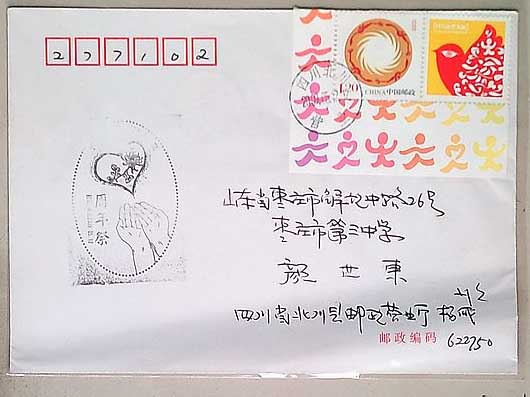 277102
1.20
CHINA 中国邮政
四川北川
周年祭
山东省枣庄市解放中路26号
枣庄市第三中学
颜世東
四川省北川县邮政营业厅 杨
邮政编码 622750